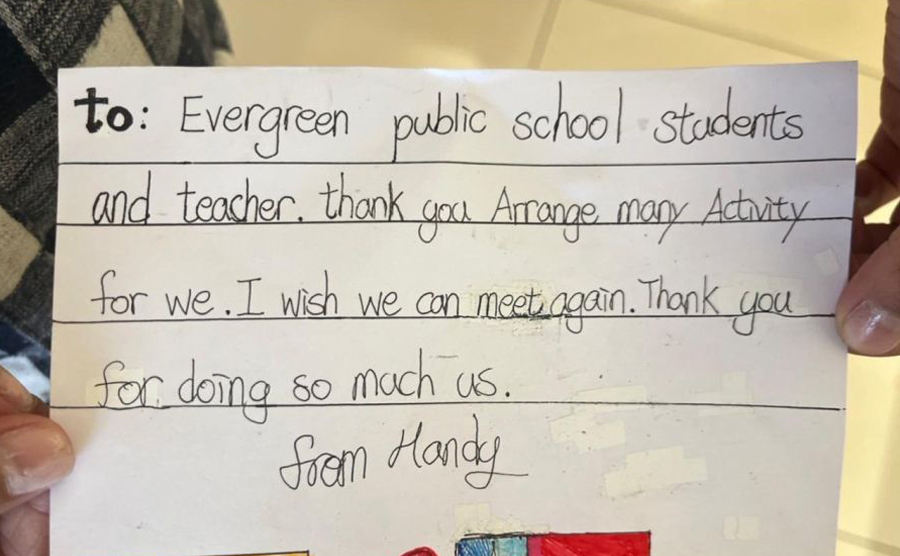 to: Evergreen public school students
and teacher. thank you Arrange many Activity
for we. I wish we can meet again. Thank you
for doing so much us.
from Handy